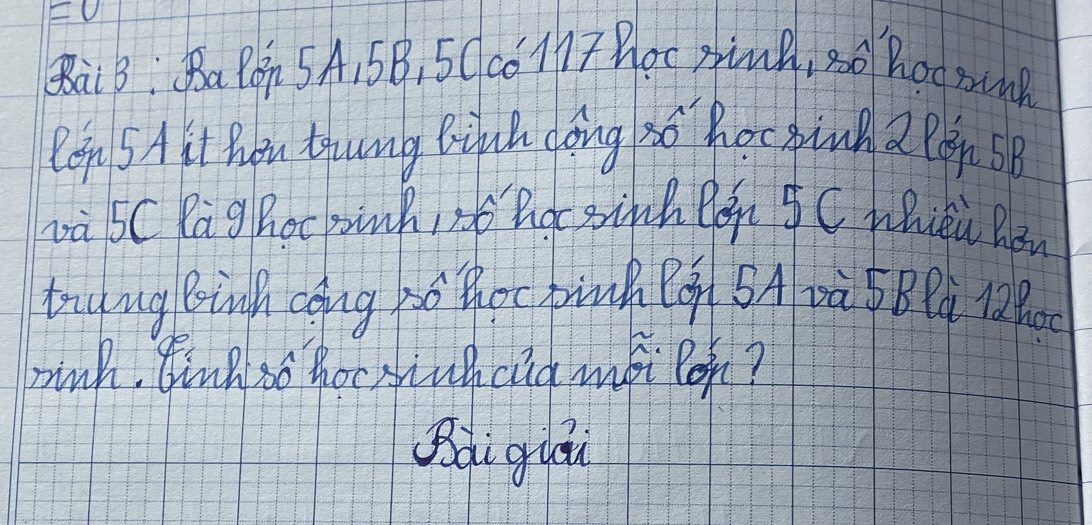 = 0
Bài 3 : Ba lớp 5A, 5B, 5C có 117 học sinh, số học sinh
lớp 5A ít hơn trung bình cộng số học sinh 2 lớp 5B
và 5C là 9 học sinh, số học sinh lớp 5C nhiều hơn
trung bình cộng số học sinh lớp 5A và 5B là 12 học
sinh. Tính số học sinh của mỗi lớp?
Bài giải